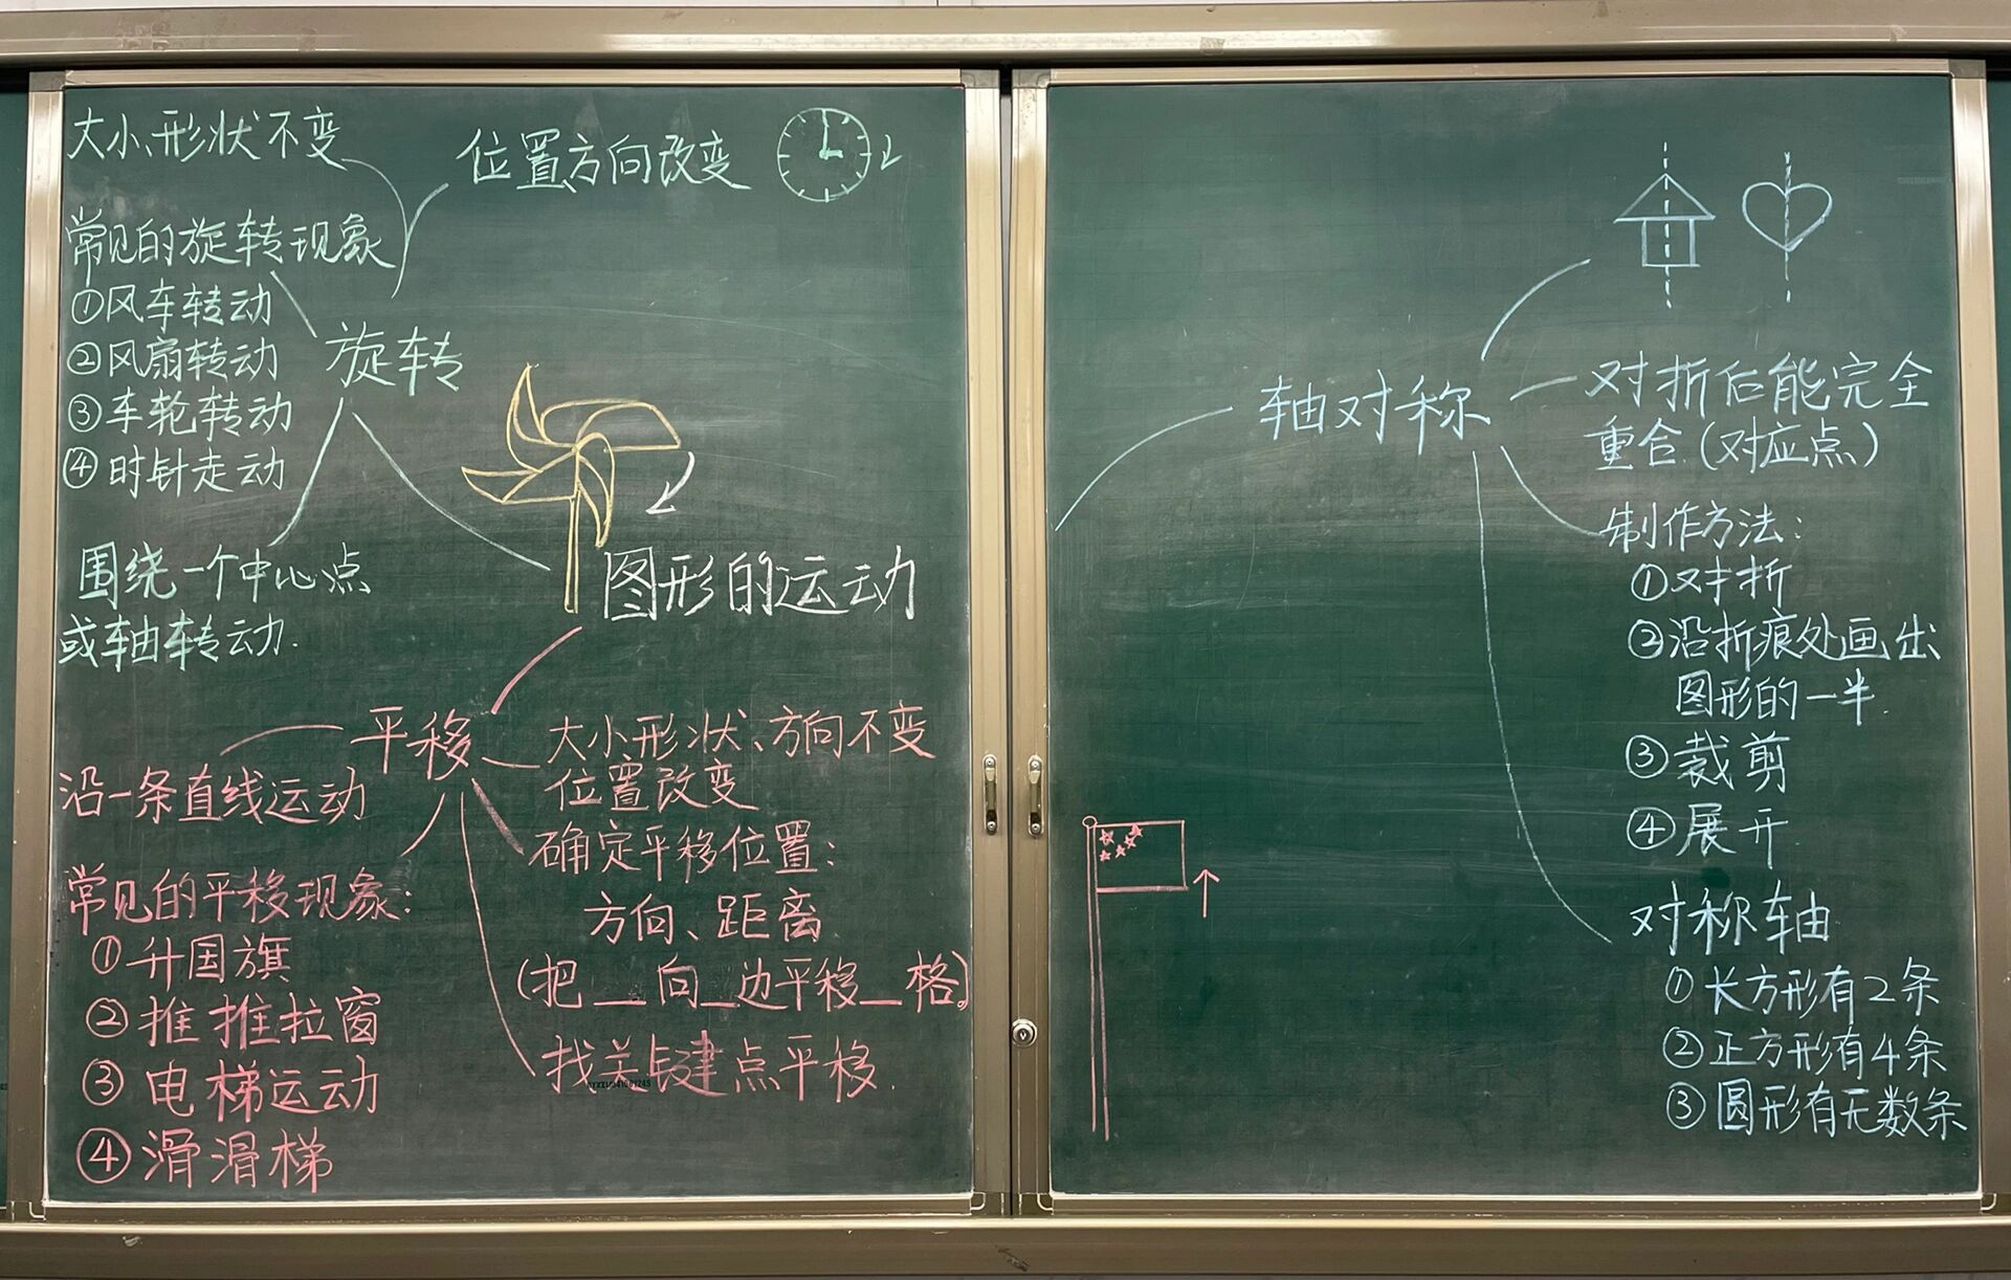 大小、形状不变
位置方向改变
常见的旋转现象
①风车转动
②风扇转动
③车轮转动
④时针走动
旋转
围绕一个中心点
或轴转动.
图形的运动
平移
沿一条直线运动
大小形状、方向不变
位置改变
确定平移位置：
方向、距离
(把__向_边平移_格)。
找关键点平移.
常见的平移现象：
①升国旗
②推推拉窗
③电梯运动
④滑滑梯
轴对称
对折后能完全
重合.(对应点)
制作方法：
①对折
②沿折痕处画出
图形的一半.
③裁剪
④展开
对称轴
①长方形有2条
②正方形有4条
③圆形有无数条